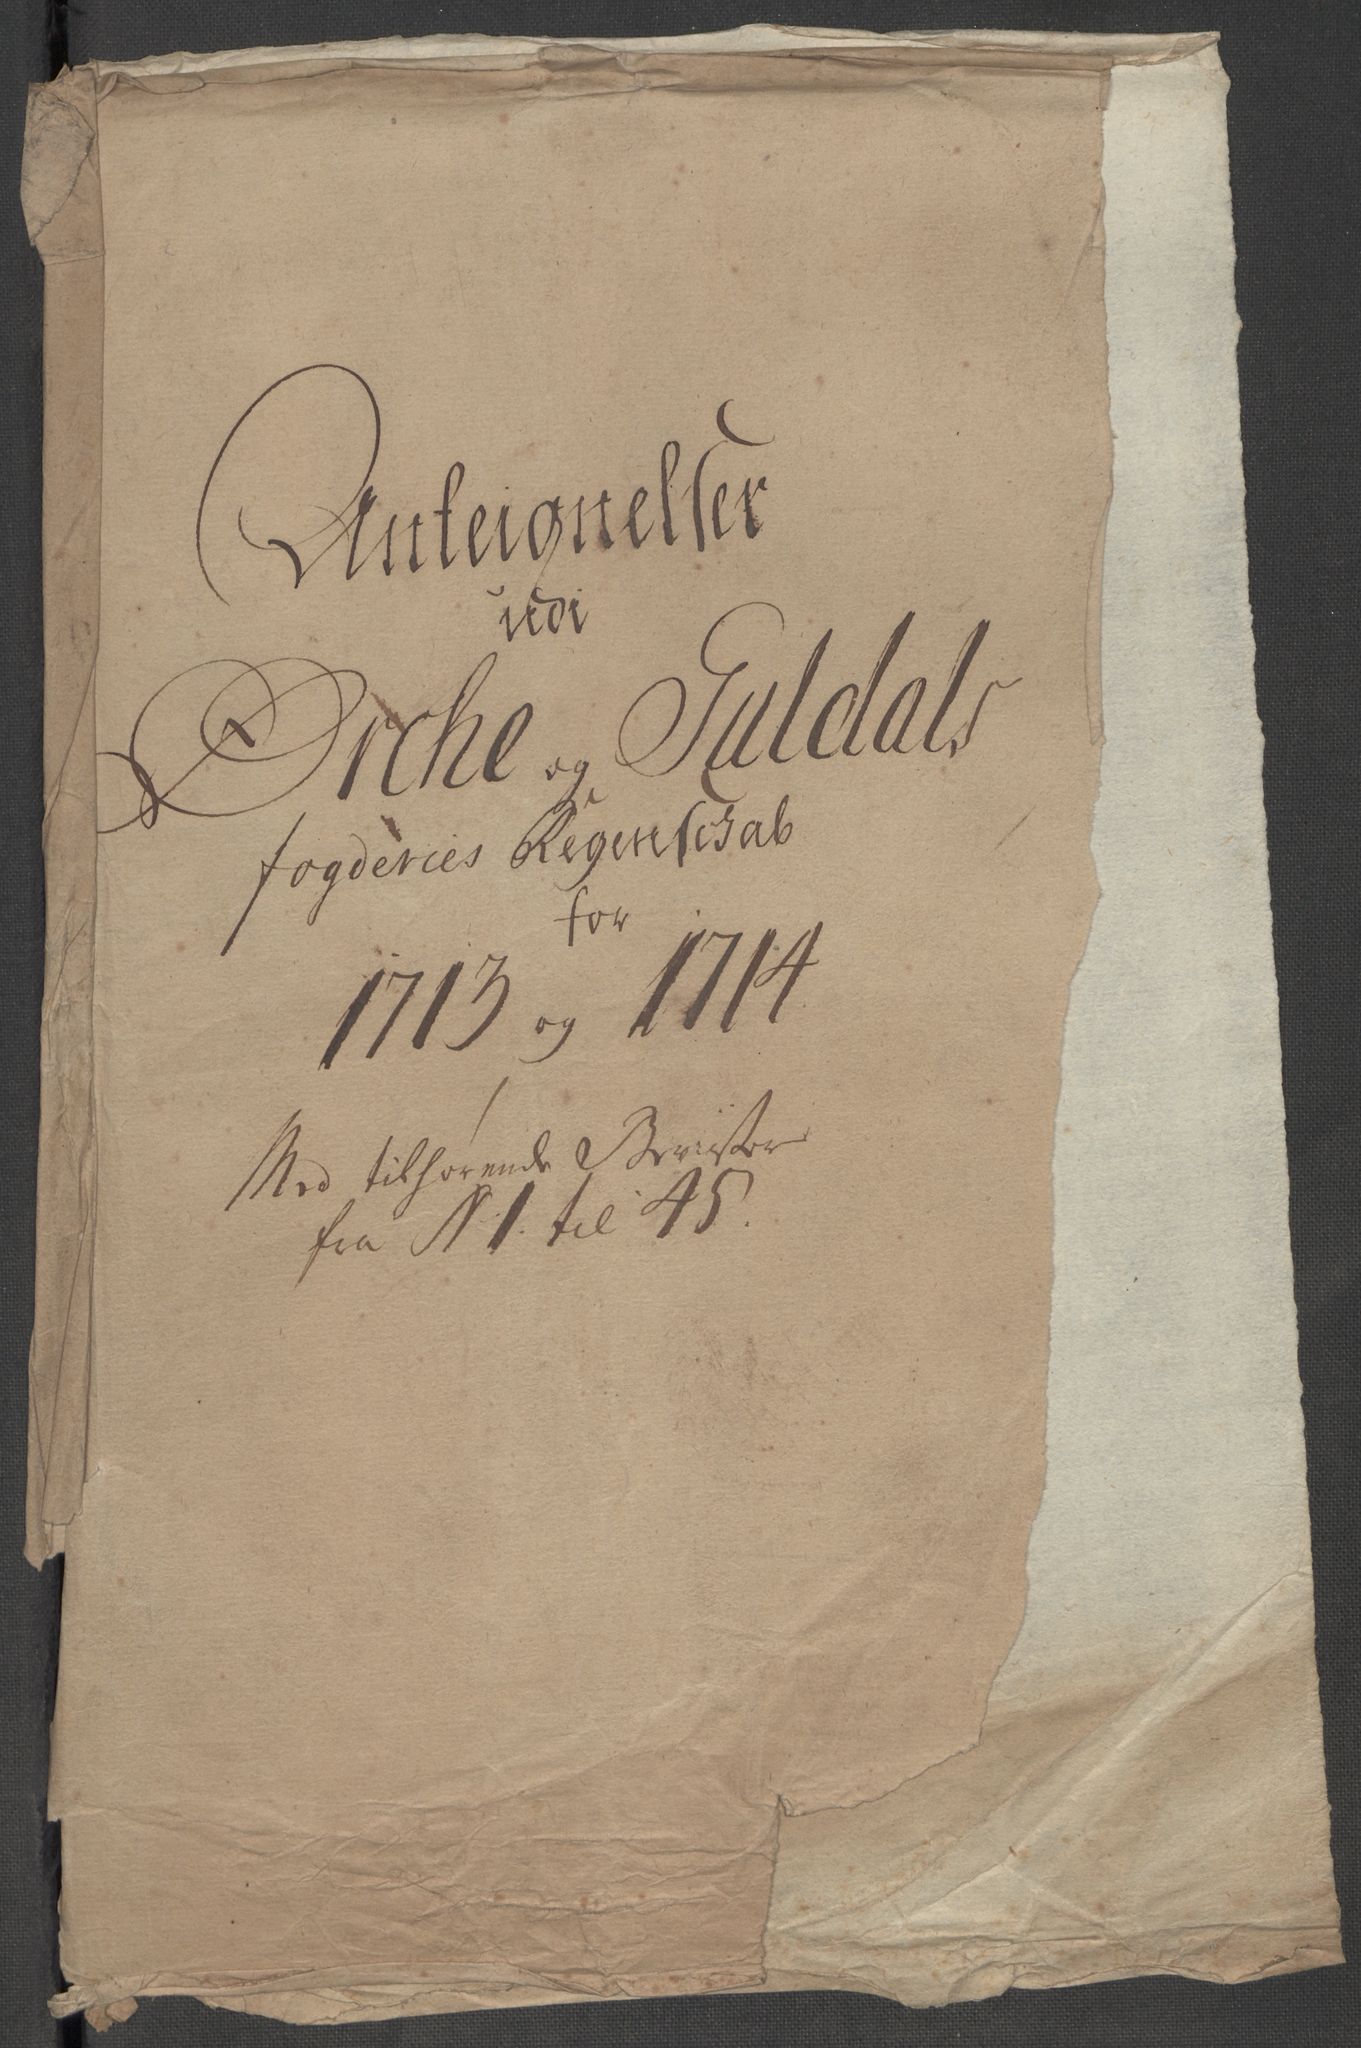 Anteignelser
udi
Ørche og Guldals
fogderies Regenschab
for
1713 og 1714
Med tilhørende Beviister
fra N 1. til 45.